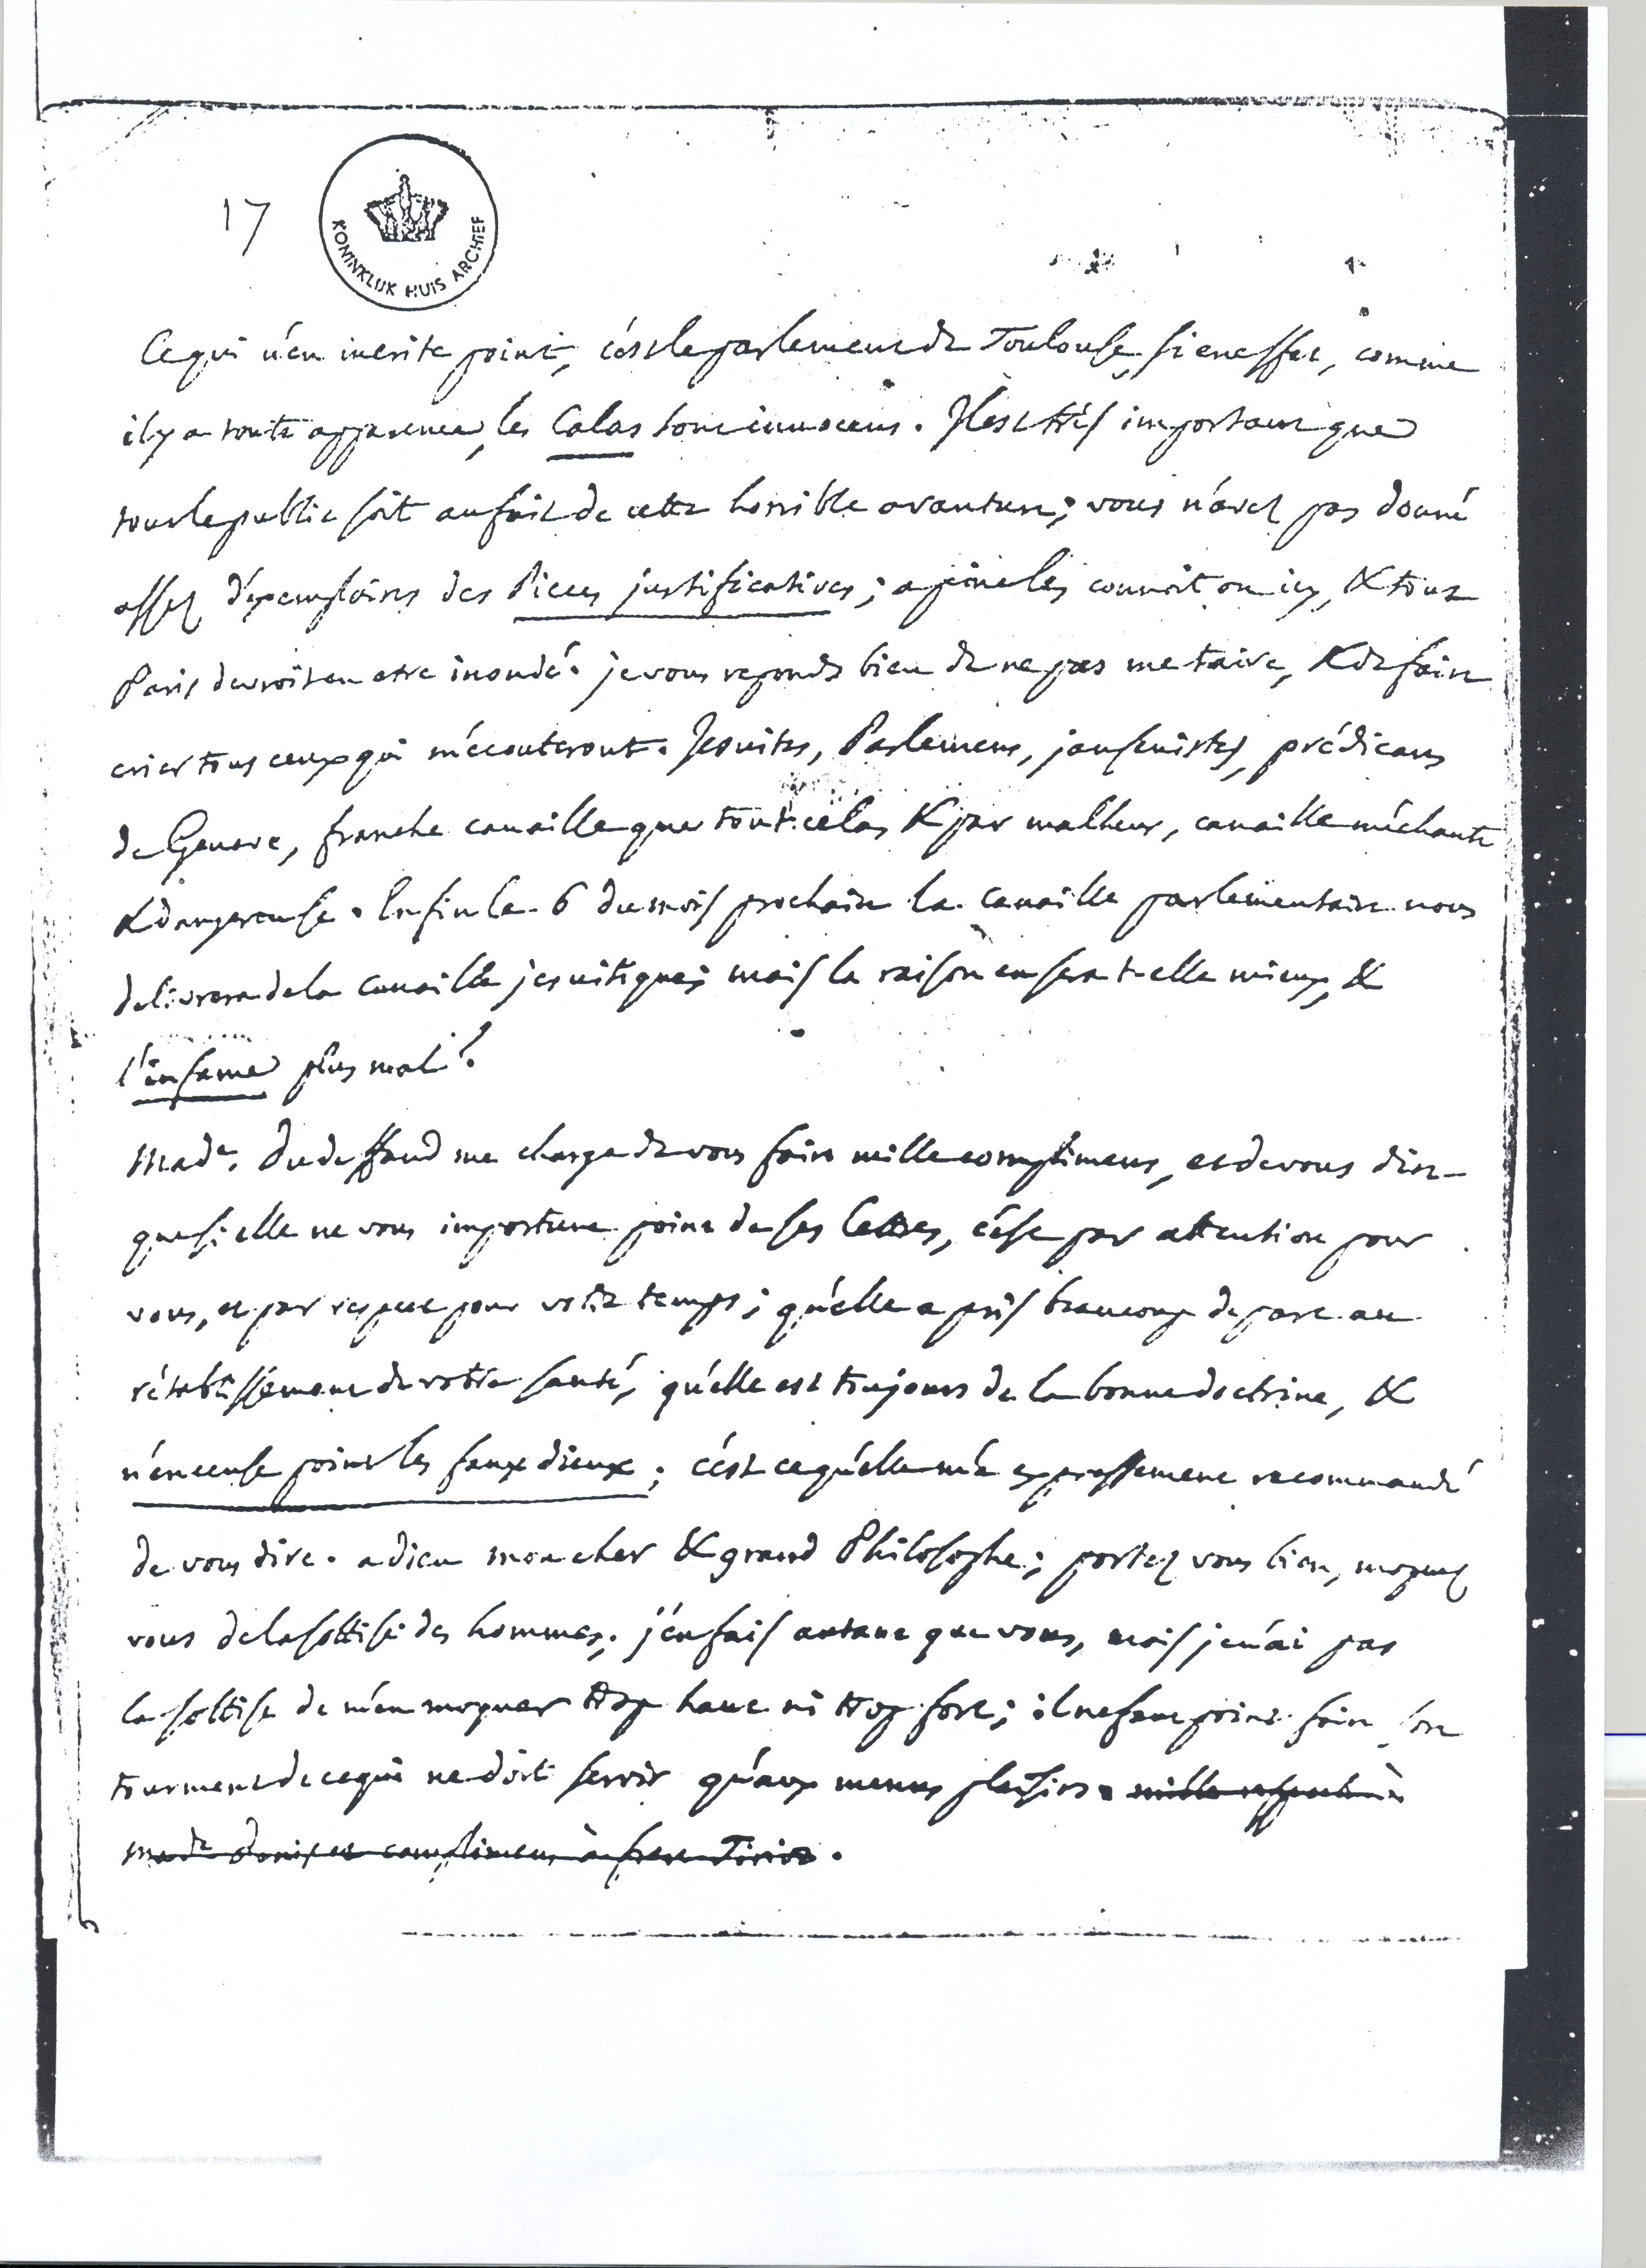 17
KONINKLIJK HUIS ARCHIEF
Ce qui n'en merite point, c'est le parlement de Toulouse, si en effet, comme
il y a toute apparence, les Calas sont innocens. Il est très important que
tout le public soit au fait de cette horrible avanture; vous n'avez pas donné
assez d'exemplaires des Pieces justificatives; a peine les connoit on icy, & tout
Paris devroit en etre inondé. je vous reponds bien de ne pas me taire, & de faire
crier tous ceux qui m'écouteront. Jesuites, Parlemens, jansenistes, prédicans
de Geneve, franche canaille que tout cela, & par malheur, canaille méchante
& dangereuse. Enfin le 6 du mois prochain la canaille parlementaire nous
delivrera de la canaille jesuitique; mais la raison en sera t-elle mieux, &
l'infame plus mal?
Made. Du deffand me charge de vous faire mille complimens, et de vous dire
que si elle ne vous importune point de ses lettres, c'est par attention pour
vous, et par respect pour votre temps; qu'elle a pris beaucoup de part au
rétablissement de votre santé, qu'elle est toujours de la bonne doctrine, &
n'encense point les faux dieux; c'est ce qu'elle m'a expressement recommandé
de vous dire. adieu mon cher & grand Philosophe; portez vous bien, moquez
vous de la sottise des hommes; j'en fais autant que vous, mais je n'ai pas
la sottise de m'en moquer trop haut ni trop fort; il ne faut point faire son
tourment de ce qui ne doit servir qu'aux menus plaisirs. mille respects à
made Denis et complimens à frere Tiriot.